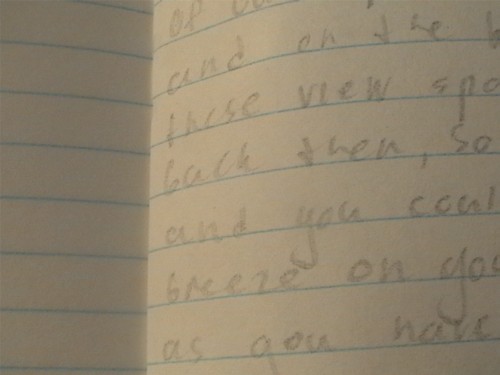 of
and on the b
those view spo
back then, so
and you coul
breeze on you
as you have